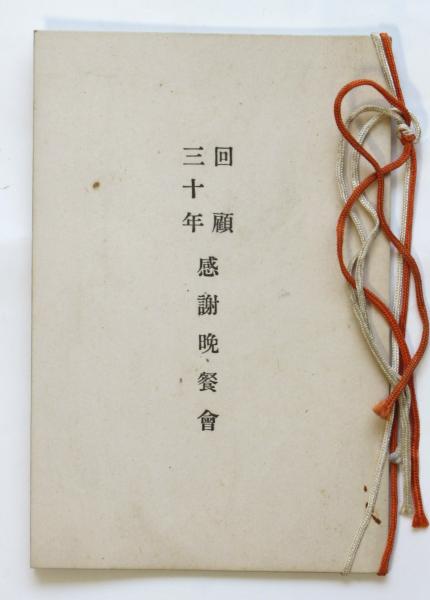 回顧
三十年
感謝晩餐會